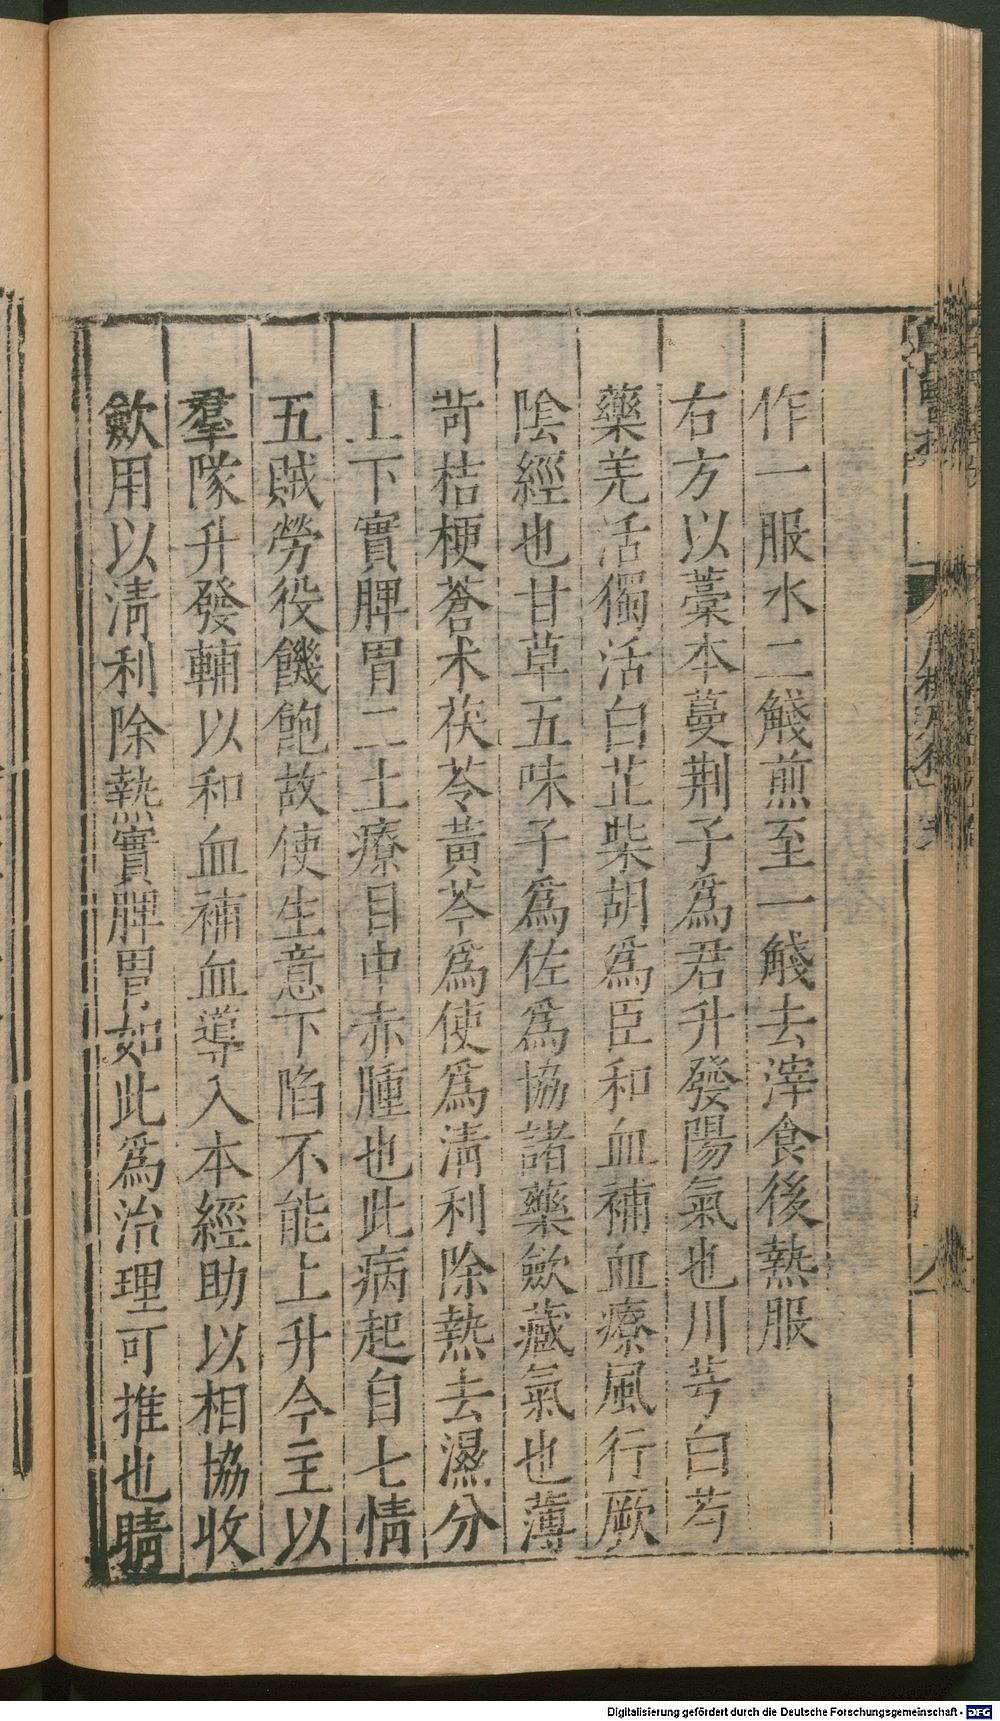 作一服水二觥煎至一觥去滓食後熱服
右方以藁本蔓荆子爲君升發陽氣也川芎白芍
藥羌活獨活白芷柴胡爲臣和血補血療風行厥
陰經也甘草五味子爲佐爲協諸藥歛藏氣也薄
苛桔梗蒼术茯苓黃芩爲使爲淸利除熱去濕分
上下實脾胃二土療目中赤腫也此病起自七情
五賊勞役饑飽故使生意下陷不能上升今主以
羣隊升發輔以和血補血導入本經助以相協收
歛用以淸利除熱實脾胃如此爲治理可推也睛
Digitalisierung gefördert durch die Deutsche Forschungsgemeinschaft - DFG